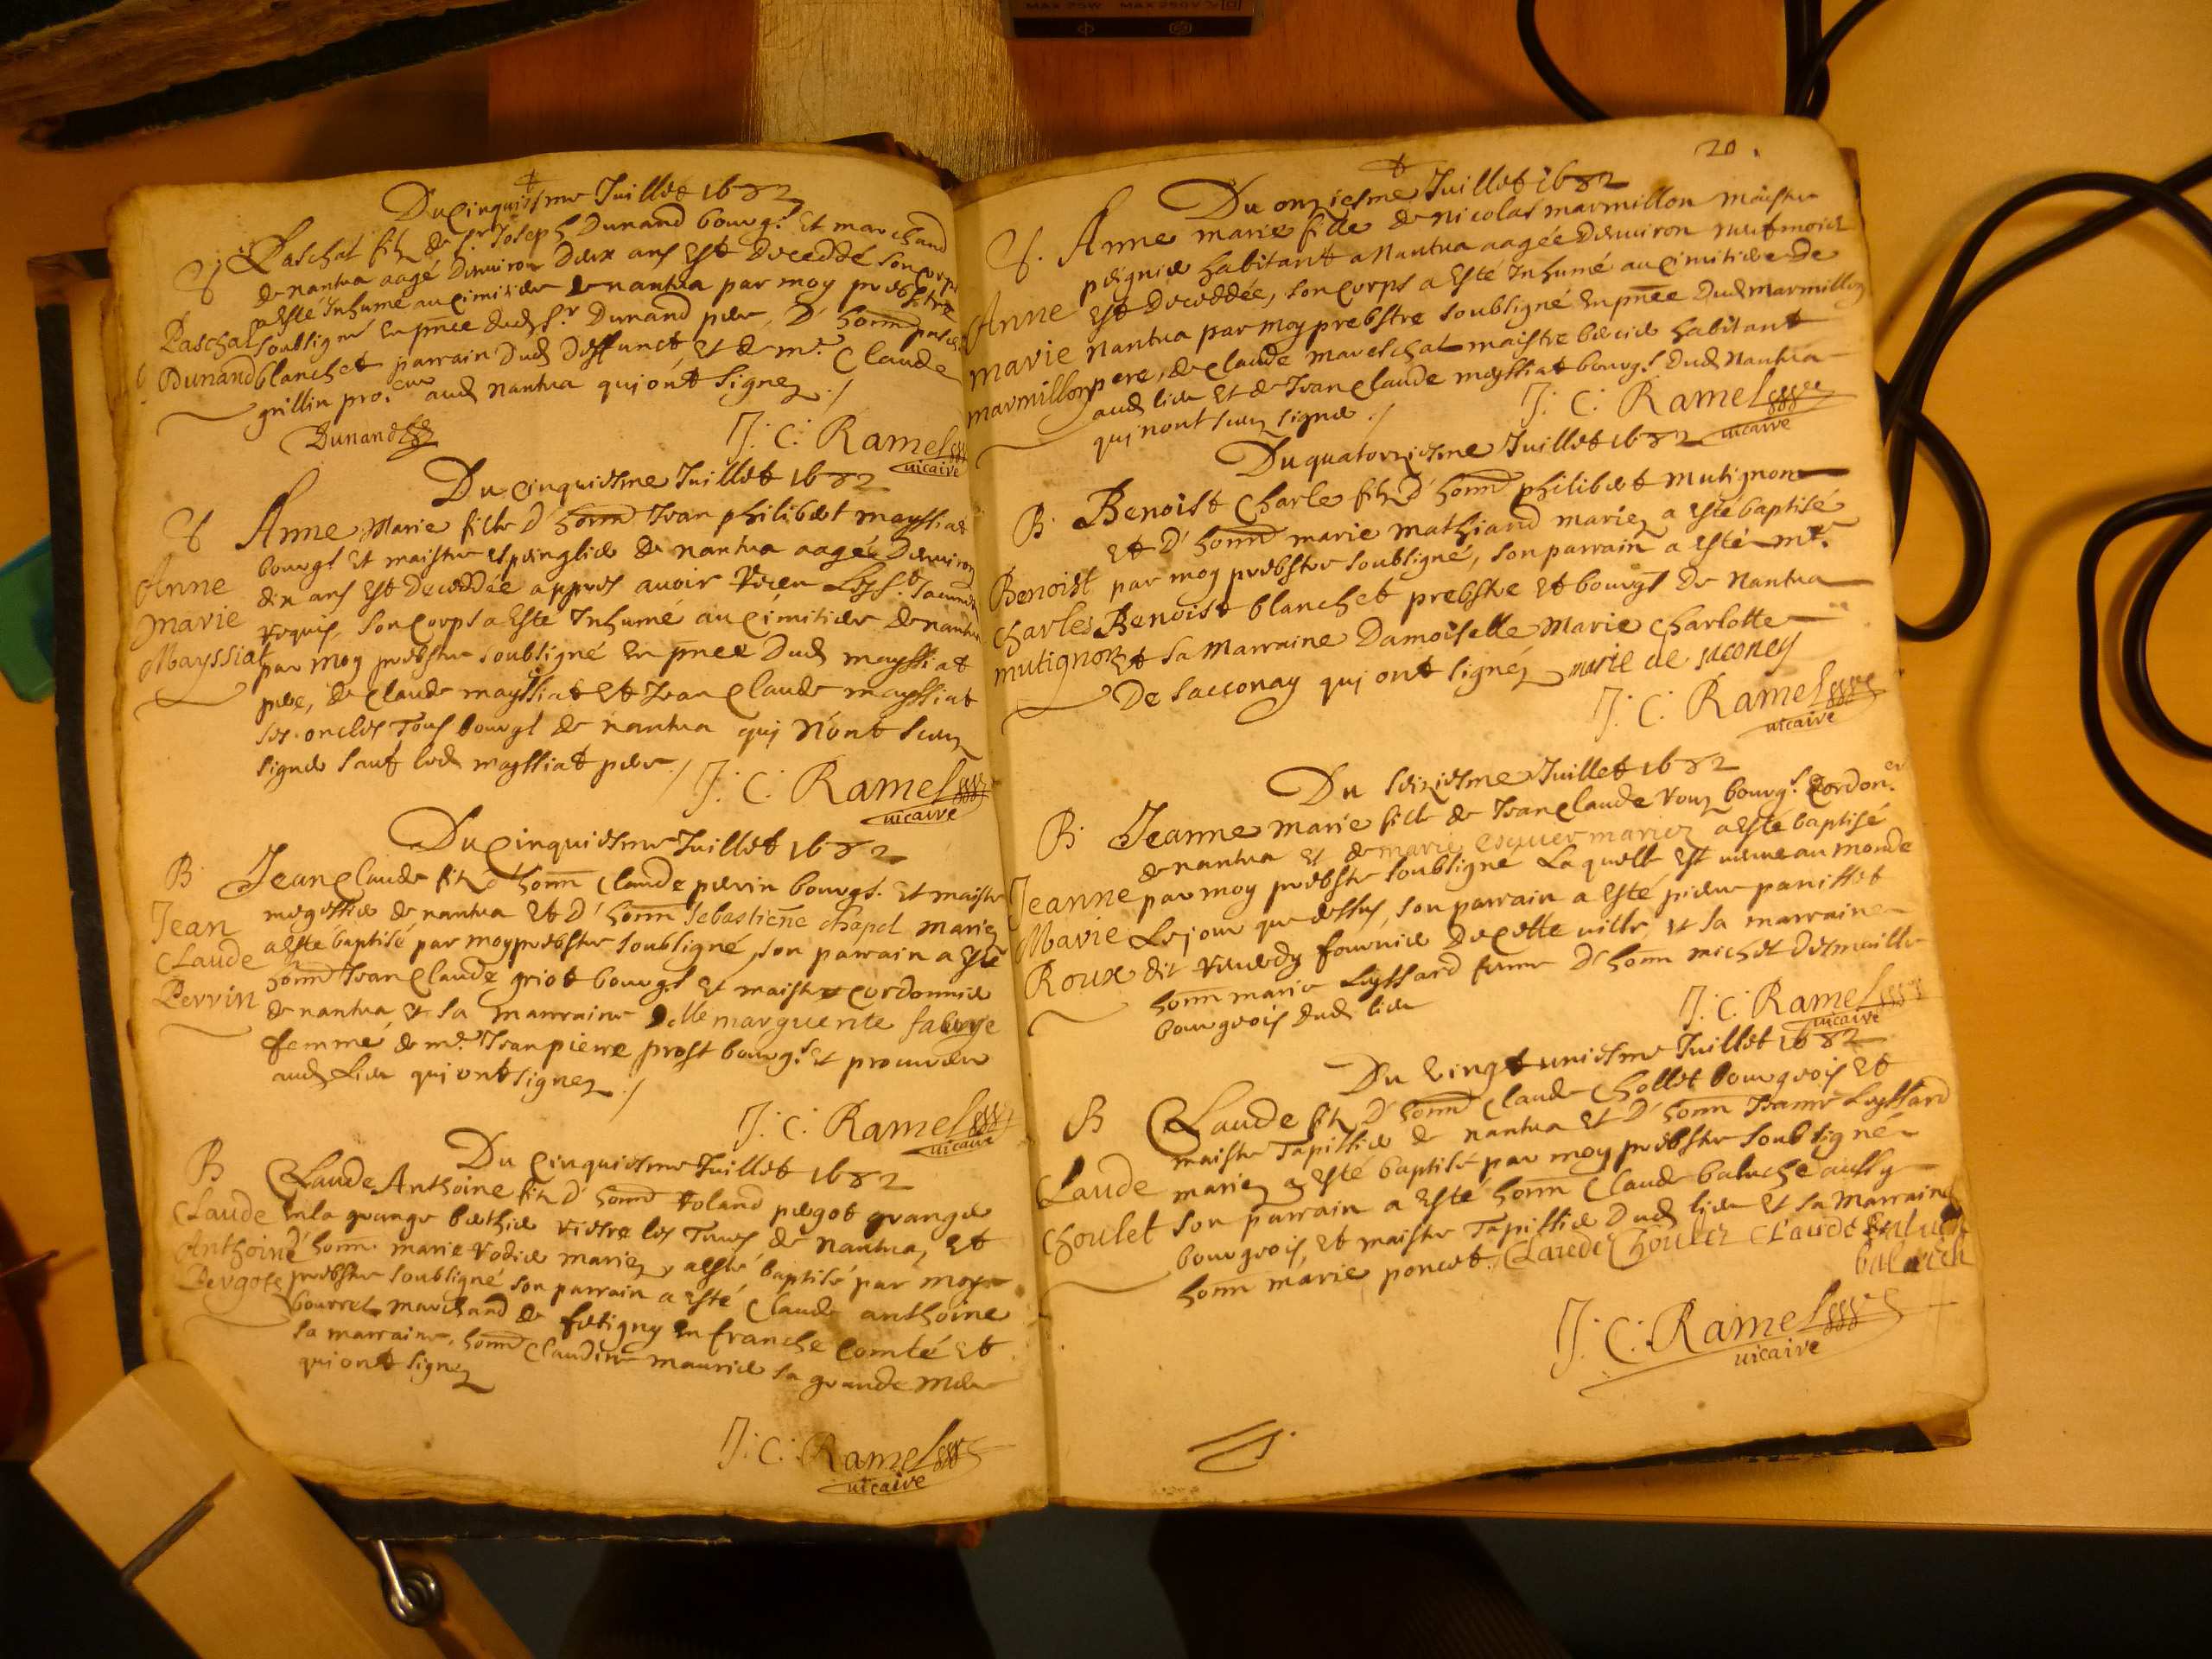 Du cinquiesme Juillet 1682
S Paschal filz de Sr Joseph Dunand bourg.s Et marchand
de nantua aagé denviron deux ans Est deceddé son corps
a esté Inhumé au cimitiere de nantua par moy prebstre
Paschal soubsigné En pnce dud Sr Dunand pere, D' honn pasch
Dunand blanchet parrain dud deffunct, Et de me Claude
grillin pro.eur aud nantua qui ont signez ./
Dunand
J: C: Ramel
vicaire
Du cinquiesme Juillet 1682
S Anne Marie fille D' honn Jean philibert mayssiat
bourg.s Et maistre espinglier de nantua aagée denviron
Anne dix ans Est deceddée appres avoir receu Les Sts sacremts
marie requis, son corps a Esté Inhumé au cimitiere de nantua
Mayssiat par moy prebstre soubsigné En pnce dud mayssiat
pere, de Claude mayssiat Et Jean Claude mayssiat
ses oncles Tous bourgs de nantua qui n'ont sceu
signer sauf led mayssiat pere ./
J: C: Ramel
vicaire
Du cinquiesme Juillet 1682
B Jean Claude filz d' honn Claude perrin bourgs. Et maistre
megissier de nantua Et D' honn sebastienne chapel mariez
Jean a esté baptisé par moy prebstre soubsigné, son parrain a esté
Claude honn Jean Claude griot bourgs Et maistre cordonnier
Perrin de nantua, Et sa marraine Dlle marguerite fabvre
femme de me Jean pierre prost bourg.s Et procureur
aud Lieu qui ont signez ./
J: C: Ramel
vicaire
Du Cinquiesme Juillet 1682
B Claude Anthoine filz d' honn roland pergot granger
Claude En la grange berthier riere les Tours de nantua, Et
Anthoine d' honn marie rodier mariez, a esté baptisé par moy
Pergote prebstre soubsigné son parrain a Esté Claude anthoine
bourret marchand de fetigny En franche Comté Et
sa marraine, honn Claudine maurier sa grande mere
qui ont signez
J: C: Ramel
vicaire
20.
Du onziesme Juillet 1682
S. Anne marie fille de nicolas marmillon maistre
peignier habitant a Nantua aagée denviron neuf mois
Anne Est deceddée, son corps a Esté Inhumé au cimitiere de
marie nantua par moy prebstre soubsigné En pnce dud marmillon
marmillon pere, de Claude mareschal maistre habitant
aud lieu Et de Jean Claude mayssiat bourg.s dud Nantua
qui nont sceu signer ./
J: C: Ramel
vicaire
Du quatorziesme Juillet 1682
B. Benoist Charle filz D' honn philibert mutignon
Et D' honn marie mathiand mariez a esté baptisé
Benoist par moy prebstre soubsigné, son parrain a Esté me.
Charles Benoist blanchet prebstre Et bourgs De Nantua
mutignon Et sa Marraine Damoiselle Marie Charlotte
De Sacconay qui ont signéz marie de saconey
J: C: Ramel
vicaire
Du seiziesme Juillet 1682
B. Jeanne marie fille de Jean Claude roux bourg.s Cordon.er
de nantua Et de marie mariez a esté baptisé
Jeanne par moy prebstre soubsigné Laquelle Est venue au monde
Marie Le jour que dessus, son parrain a Esté pierre panisset
Roux dit fournier De cette ville, Et sa marraine
honn marie Lyssard femme D' honn michel
bourgeois dud lieu
J: C: Ramel
vicaire
Du Vingt uniesme Juillet 1682
B Claude filz D' honn Claude Chollet bourgeois Et
maistre Tapissier de nantua Et D' honn Jeanne Lyssard
Claude mariez a Esté baptisé par moy prebstre soubsigné
Choulet son parrain a Esté honn Claude baluche aussy
bourgeois, Et maistre Tapissier Dud lieu Et sa marraine
honn marie poncet. Claude Choulet Claude
J: C: Ramel
vicaire